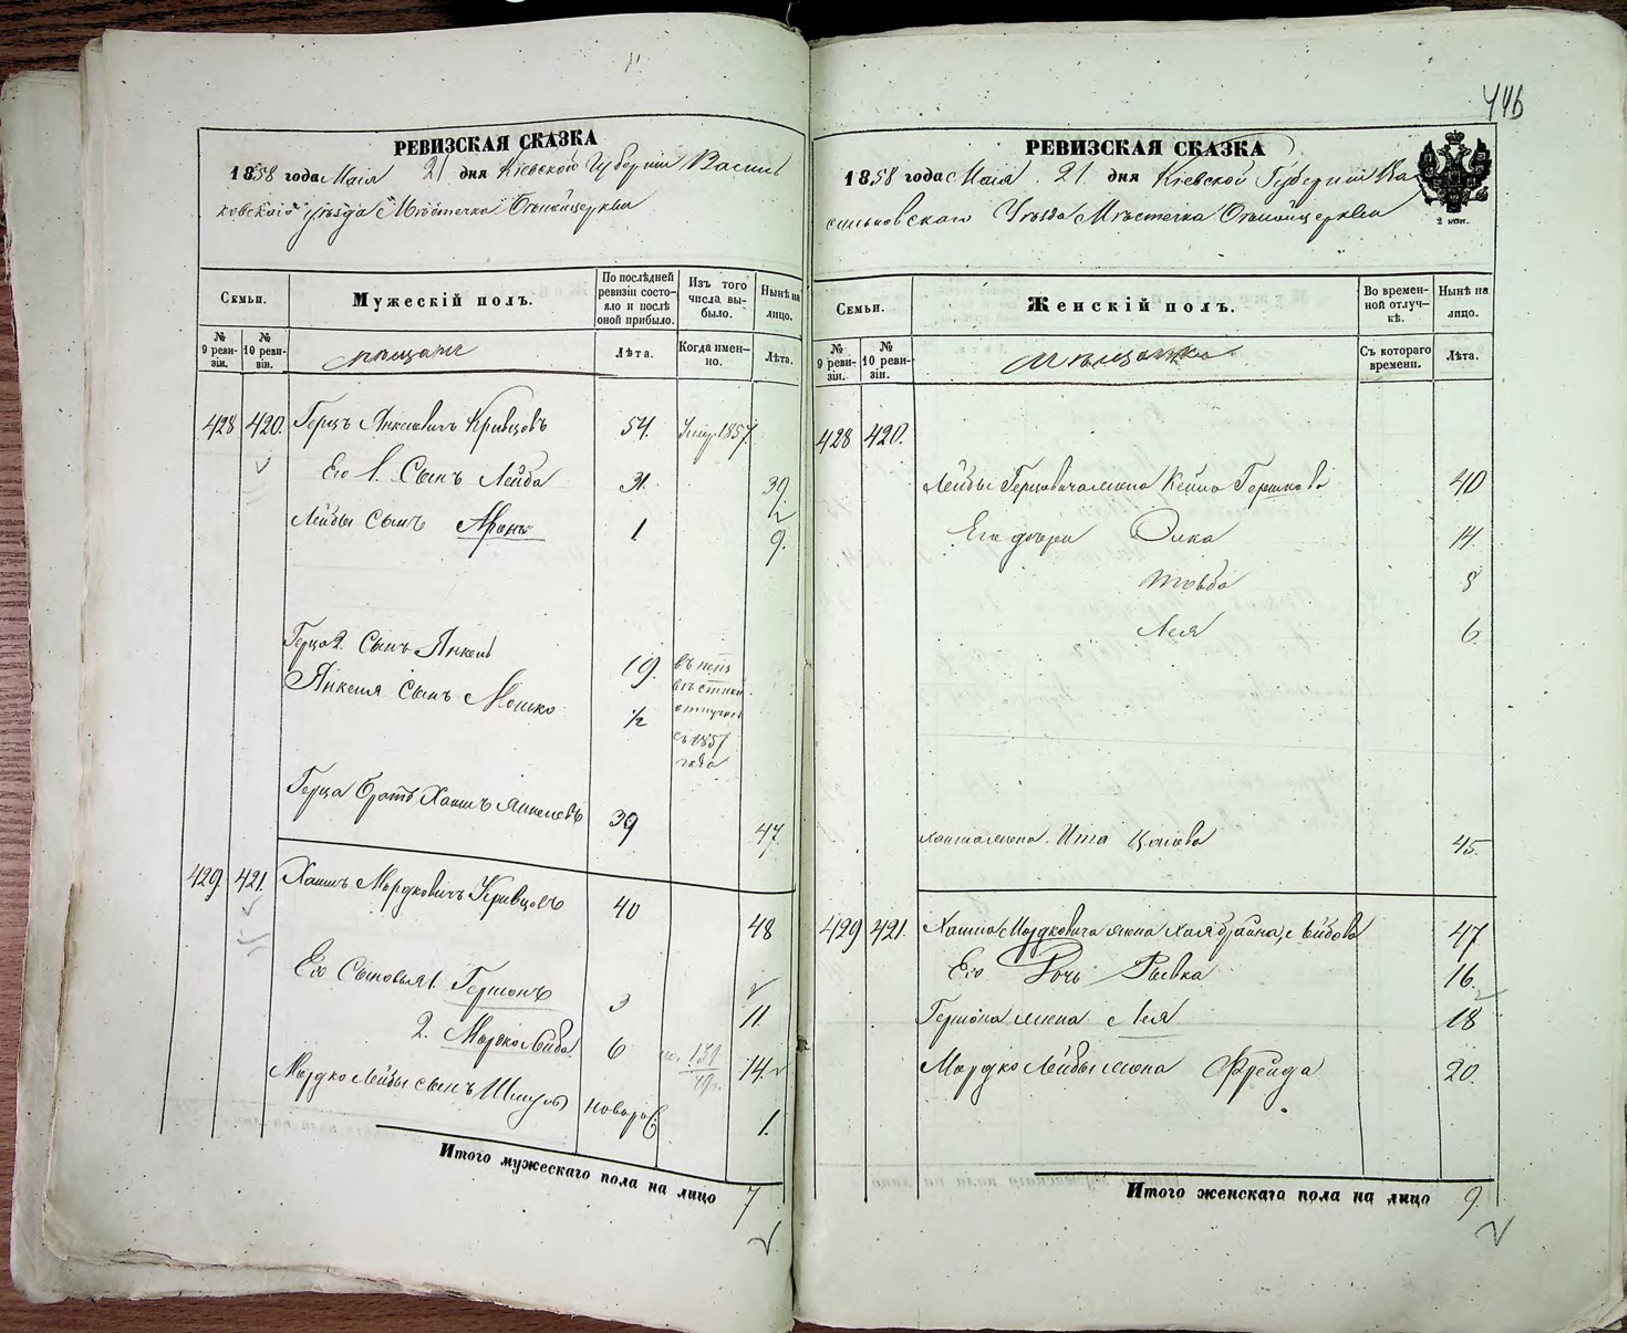 446
РЕВИЗСКАЯ СКАЗКА
1858 года Маія 21 дня Кіевской Губерніи Василь
ковскаго уѣзда Мѣстечка Бѣлойцеркви
Семьи.
Мужескій полъ.
По послѣдней ревизіи состояло и послѣ оной прибыло.
Изъ того числа выбыло.
Нынѣ на лицо.
№ 9 ревизіи.
№ 10 ревизіи.
мѣщане
Лѣта.
Когда именно.
Лѣта.
428 420. Герцъ Янкелевичъ Кривцовъ 54. Умер. 1857.
Его 1. Сынъ Лейба 31. 39
Лейбы Сынъ Аронъ 1 9.
Герца 2. Сынъ Янкель 19.
Янкеля Сынъ Мошко 1/2
отлучкѣ
съ 1857
года
Герца братъ Хаимъ Янкелевъ 39 47
429. 421. Хаимъ Мордковичъ Кривцовъ 40 48
Его Сыновья 1. Гершонъ 3 11.
2. Мордко Лейба 6 14.
Мордко Лейбы сынъ Шмуль новорож 1.
Итого мужескаго пола на лицо 7
РЕВИЗСКАЯ СКАЗКА
1858 года Маія 21 дня Кіевской Губерніи Ва
сильковскаго Уѣзда Мѣстечка Бѣлойцеркви
2 коп.
Семьи.
Женскій полъ.
Во временной отлучкѣ.
Нынѣ на лицо.
№ 9 ревизіи.
№ 10 ревизіи.
Мѣщанки
Съ котораго времени.
Лѣта.
428 420.
Лейбы Герцовича жена Кейла Гершкова 40
Его дочери Элка 14.
Товба 8
Лея 6
Хаима жена Ита 45
429 421. Хаима Мордковича жена Хая Брайна Лейбова 47
Его Дочь Рывка 16.
Гершона жена Лея 18
Мордко Лейбы жена Фрейда 20.
Итого женскаго пола на лицо 9.